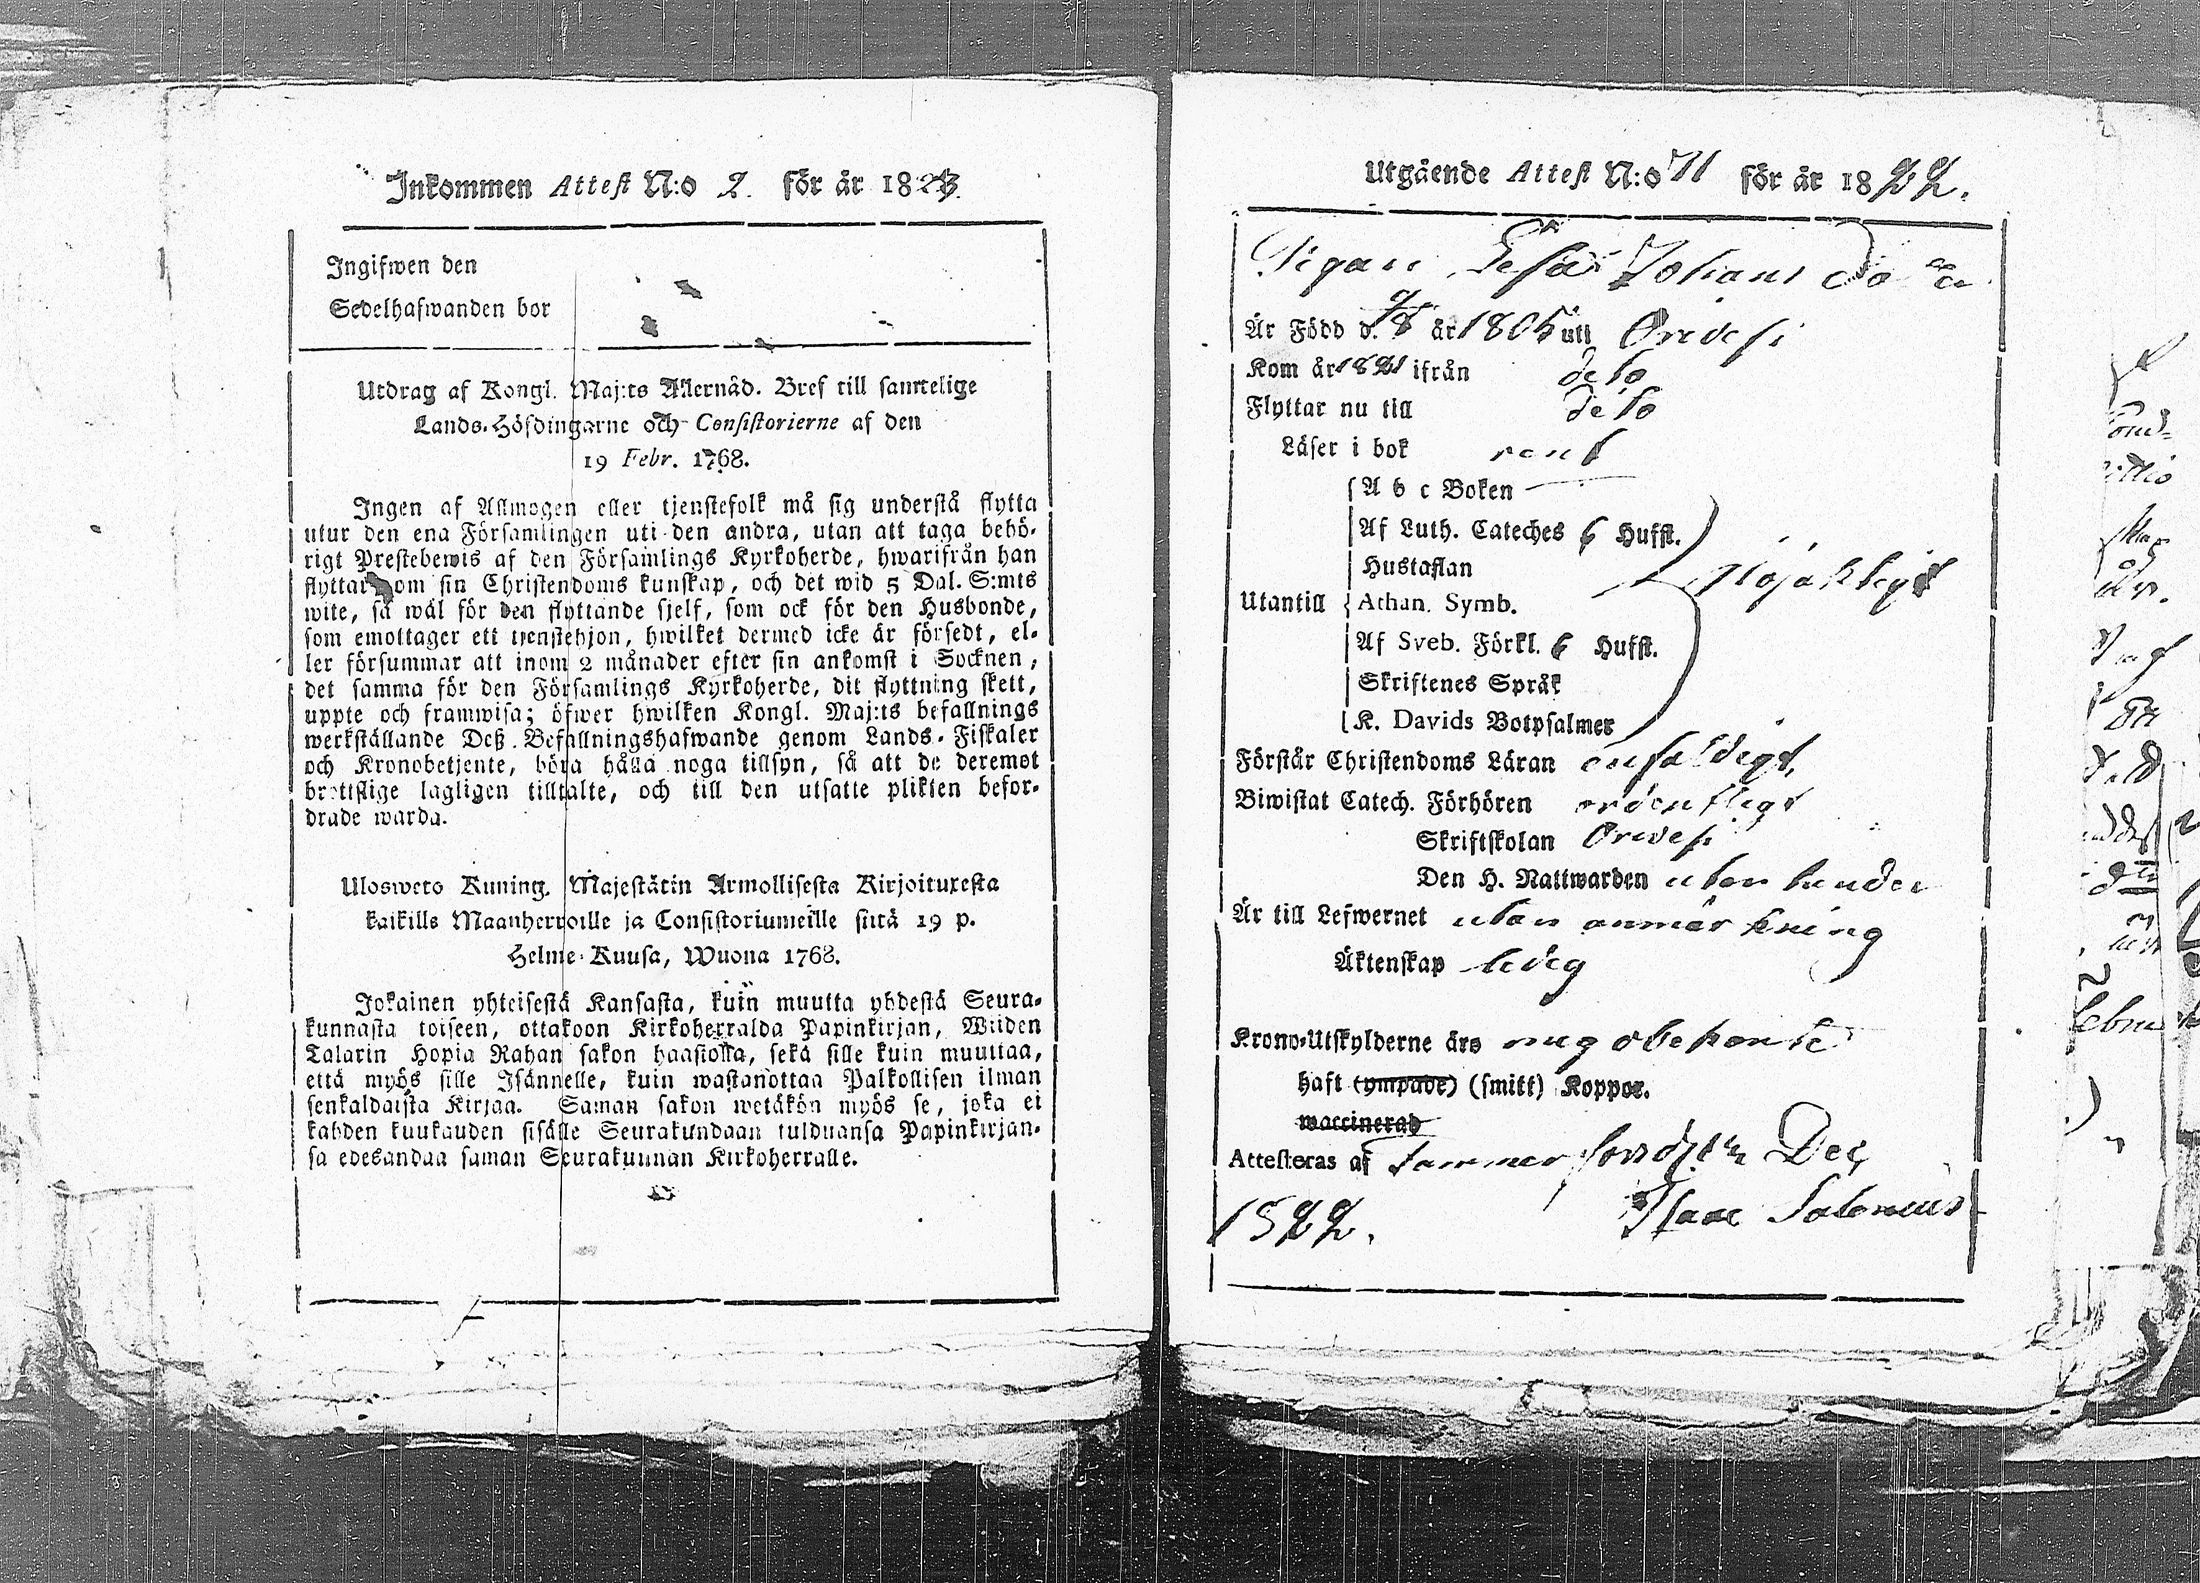 Inkommen Attest N:o 2. för år 1823.
Ingifwen den
Sedelhafwanden bor
Utdrag af Kongl. Maj:ts Allernåd. Bref till samtelige
Lands-Höfdingarne och Consistorierne af den
19 Febr. 1768.
Ingen af Allmogen eller tjenstefolk må sig understå flytta
utur den ena Församlingen uti den andra, utan att taga behö-
rigt Prestebewis af den Församlings Kyrkoherde, hwarifrån han
flyttar om sin Christendoms kunskap, och det wid 5 Dal. S:mts
wite, så wäl för den flyttande sjelf, som ock för den Husbonde,
som emottager ett tjenstehjon, hwilket dermed icke är försedt, el-
ler försummar att inom 2 månader efter sin ankomst i Socknen,
det samma för den Församlings Kyrkoherde, dit flyttning skett,
uppte och framwisa; öfwer hwilken Kongl. Maj:ts befallnings
werkställande Deß Befallningshafwande genom Lands-Fiskaler
och Kronobetjente, böra hålla noga tillsyn, så att de deremot
brottslige lagligen tilltalte, och till den utsatte plikten befor-
drade warda.
Uloswets Kuning. Majestätin Armollisesta Kirjoituxesta
kaikille Maanherroille ja Consistoriumeille siitä 19 p.
Helme-Kuusa, Wuona 1768.
Jokainen yhteisestä Kansasta, kuin muutta yhdestä Seura-
kunnasta toiseen, ottakoon Kirkoherralda Papinkirjan, Wiiden
Talarin Hopia Rahan sakon haasiossa, sekä sille kuin muuttaa,
että myös sille Isännelle, kuin wastanottaa Palkollisen ilman
senkaldaista Kirjaa. Saman sakon wetäkön myös se, joka ei
kahden kuukauden sisälle Seurakundaan tulduansa Papinkirjan-
sa edesandaa saman Seurakunnan Kirkoherralle.
Utgående Attest N:o 71 för år 1822.
Pigan Johans
Är Född d. år 1805 uti Orivesi
Kom år 1821 ifrån deto
Flyttar nu till deto
Läser i bok rent
A b c Boken
Af Luth. Cateches 6 Hufst.
Hustaflan
nöjakligt
Utantill Athan. Symb.
Af Sveb. Förkl. 6 Hufst.
Skriftenes Språk
K. Davids Botpsalmer
Förstår Christendoms Läran enfaldigt,
Biwistat Catech. Förhören ordentligt
Skriftskolan Orivesi
Den H. Nattwarden
Är till Lefwernet utan anmärkning
Äktenskap ledig
Krono-Utskylderne äro mig obekante
haft (ympade) (smitt) Koppor.
waccinerad
Attesteras af Tammerfors d. Dec.
1822. Isaac Salonius